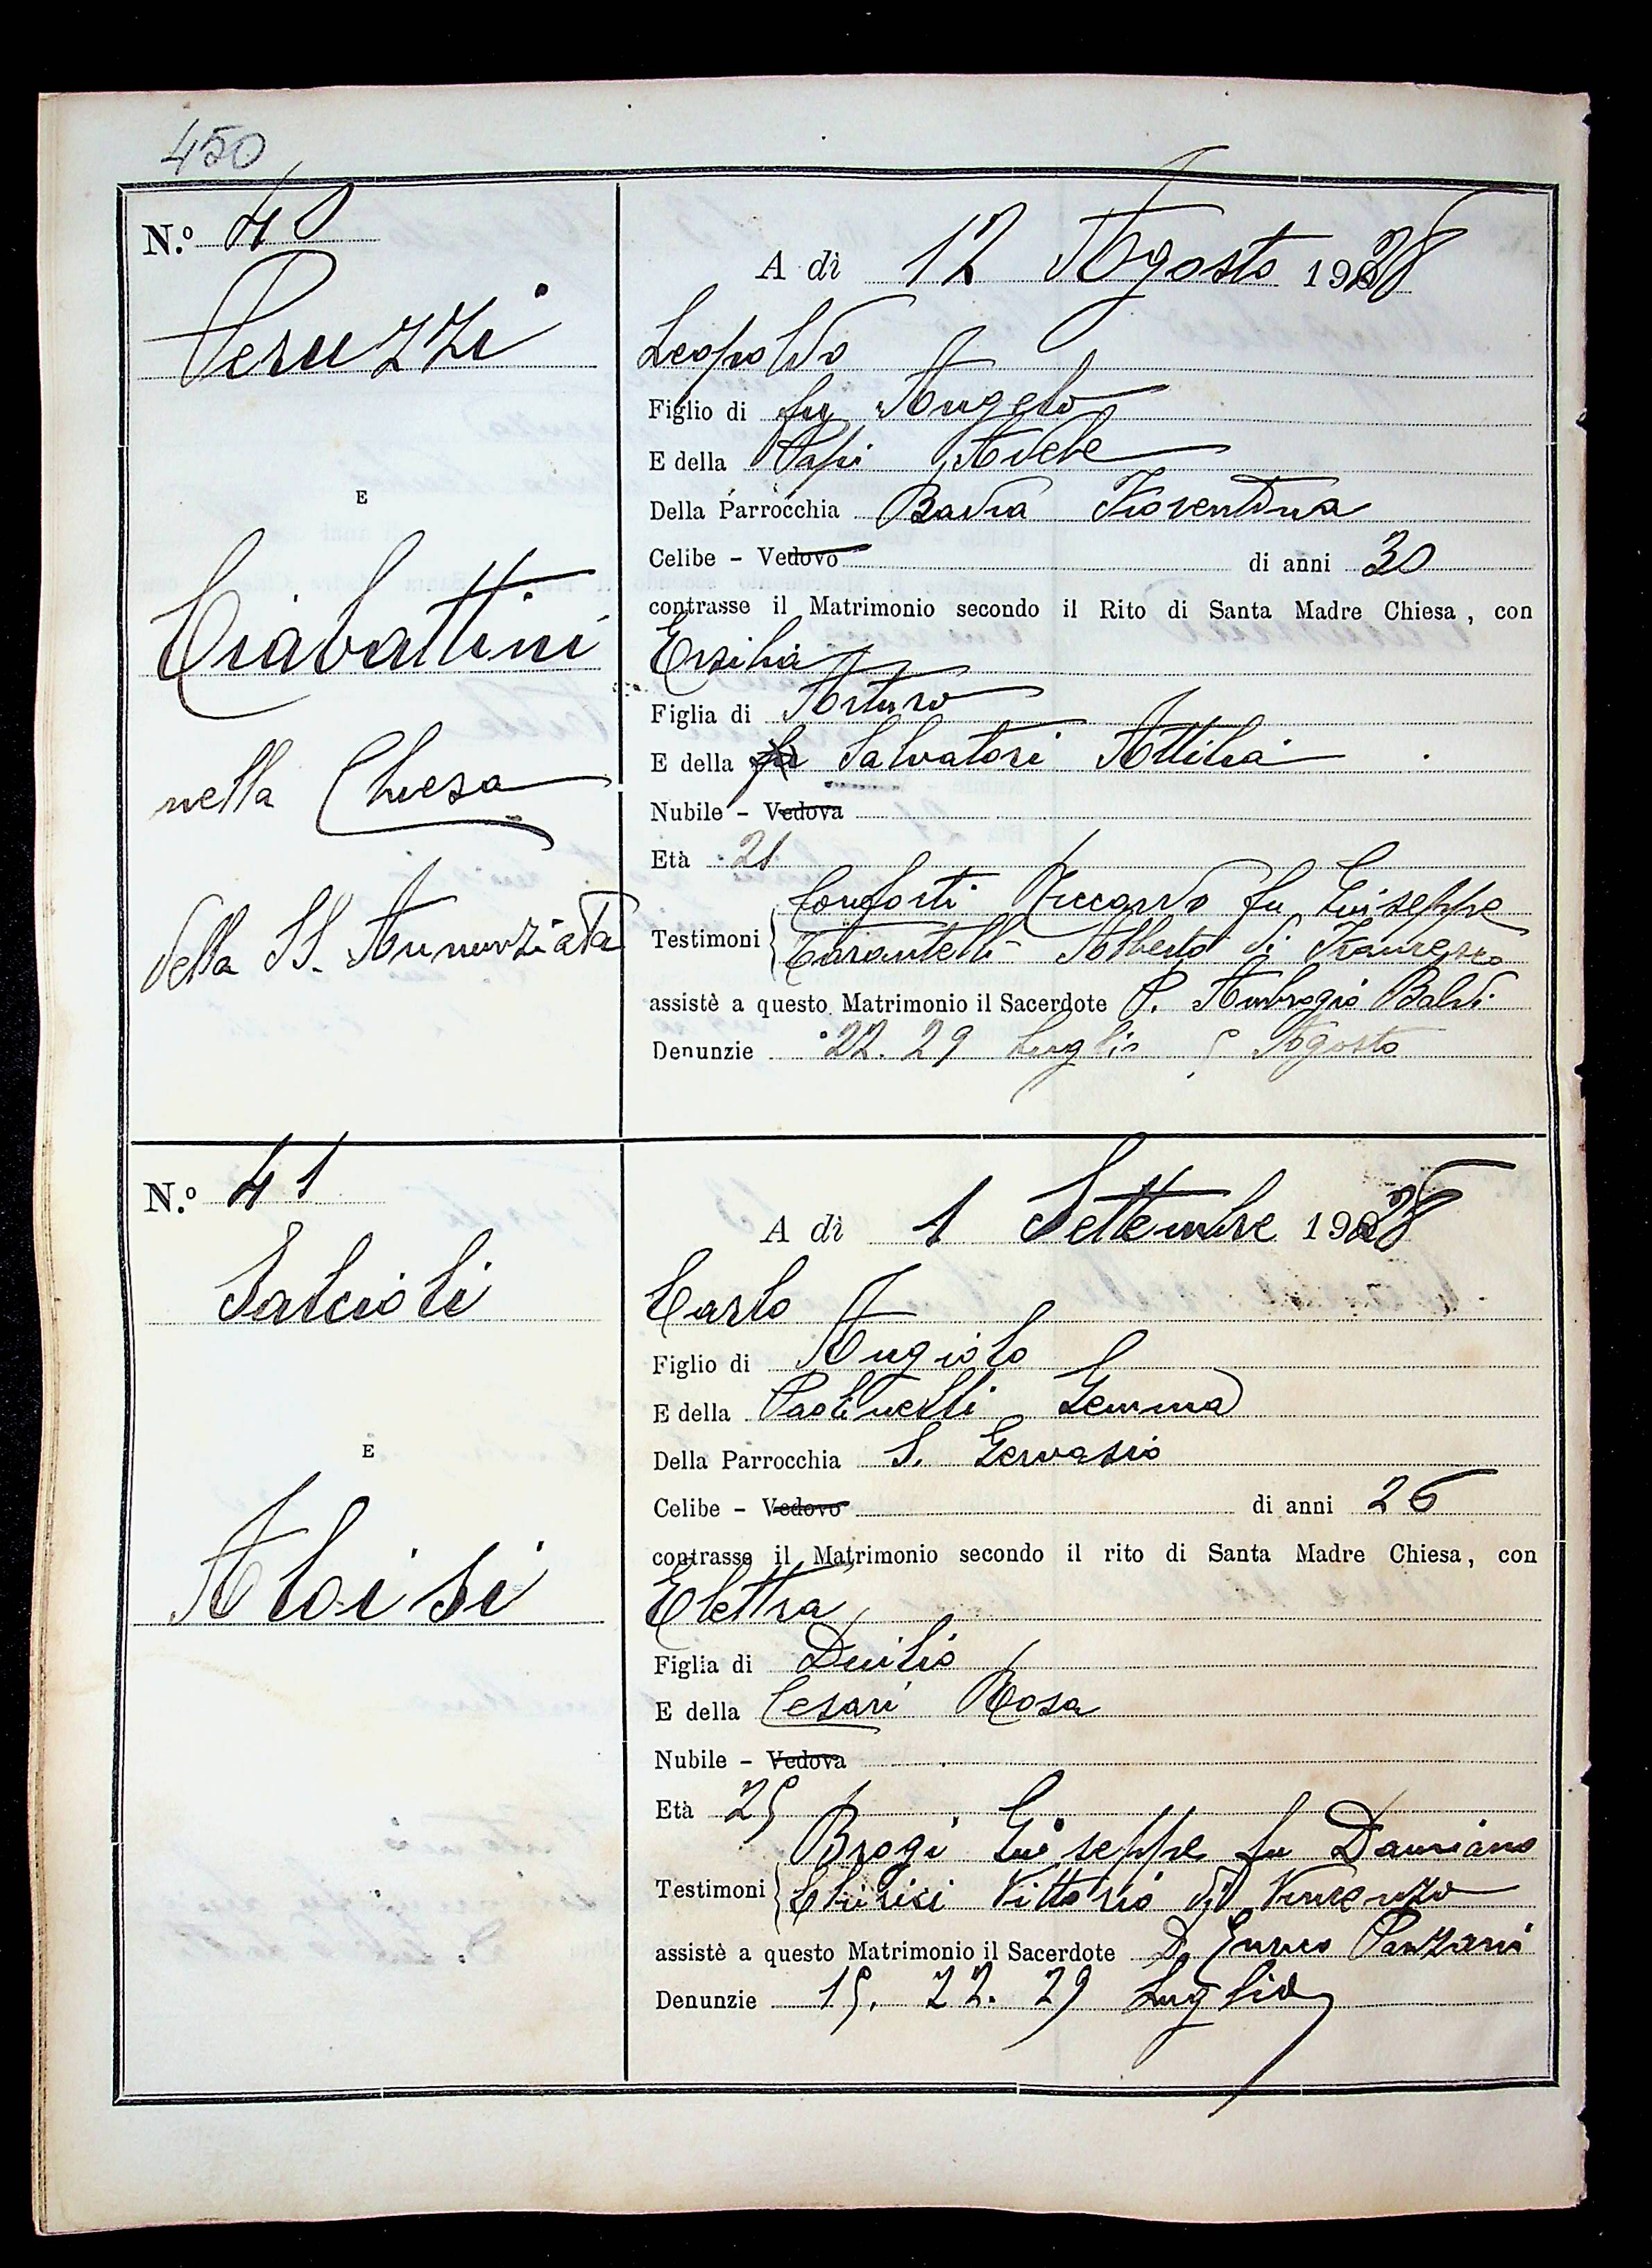 450
N.º 40
A dì 12 Agosto 1928
Peruzzi
Leopoldo
Figlio di fu Angelo
E della Papi Adele
Della Parrocchia Badia Fiorentina
E
Celibe - Vedovo di anni 30
contrasse il Matrimonio secondo il Rito di Santa Madre Chiesa, con
Ciabattini
Ersilia
Figlia di Arturo
E della fu Salvatori Attilia
nella Chiesa
Nubile - Vedova
Età 21
della SS. Annunziata
Testimoni Conforti Riccardo fu Giuseppe
Tarantelli Alberto di Francesco
assistè a questo Matrimonio il Sacerdote P. Ambrogio Baldi
Denunzie 22. 29 Luglio 5 Agosto
N.º 41
A dì 1 Settembre 1928
Salcioli
Carlo
Figlio di Angiolo
E della Paolinelli Gemma
Della Parrocchia S. Gervasio
E
Celibe - Vedovo di anni 26
contrasse il Matrimonio secondo il rito di Santa Madre Chiesa, con
Aloisi
Elettra
Figlia di Duilio
E della Cesari Rosa
Nubile - Vedova
Età 25
Testimoni Brogi Giuseppe fu Damiano
Vittorio di Vincenzo
assistè a questo Matrimonio il Sacerdote D. Enrico Panzani
Denunzie 15. 22. 29 Luglio